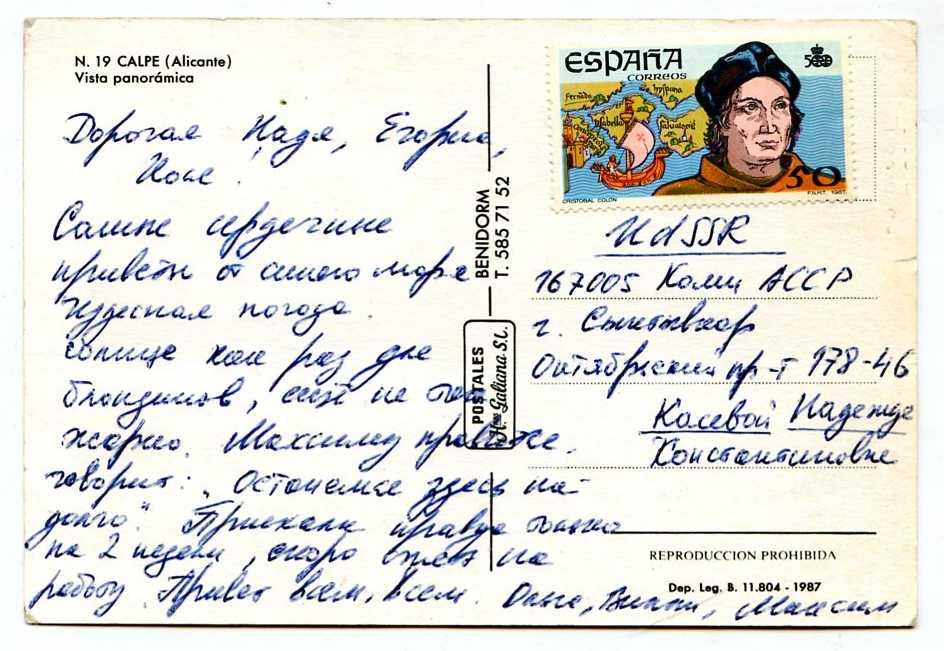 N. 19 CALPE (Alicante)
Vista panorámica
Дорогая Надя, Егорка,
Коле.
Самые сердечные
приветы от синего моря
Чудесная погода
солнце как раз для
блондинов, ещё не так
жарко. Максиму
говорит: "Останемся здесь на-
долго". Приехали правда только
на 2 недели, скоро опять на
работу. Привет всем, всем. Ольга, Виктор, Максим
BENIDORM
T. 585 71 52
POSTALES
Hnos Galiana S.L.
ESPAÑA
CORREOS
500
Fernãda
hyspana
Isabella
Salvatorie
50
CRISTOBAL COLON
F.N.M.T. 1987
UdSSR
167005 Коми АССР
г. Сыктывкар
Октябрьский пр-т 178-46
Касевой Надежде
Константиновне
REPRODUCCION PROHIBIDA
Dep. Leg. B. 11.804 - 1987